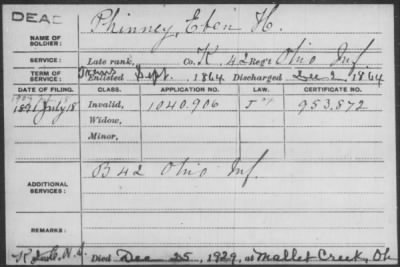 DEAD
Phinney, Eben H.
NAME OF SOLDIER:
SERVICE: Late rank, Co. K, 42 Reg't Ohio Inf
TERM OF SERVICE: Trans Enlisted Sept. 1864 Discharged Dec 2, 1864
DATE OF FILING. CLASS. APPLICATION NO. LAW. CERTIFICATE NO.
1891 July 18 Invalid, 1040.906 953.872
Widow,
Minor,
ADDITIONAL SERVICES: B 42 Ohio Inf.
REMARKS:
Died Dec 25, 1929, at Mallet Creek, Oh